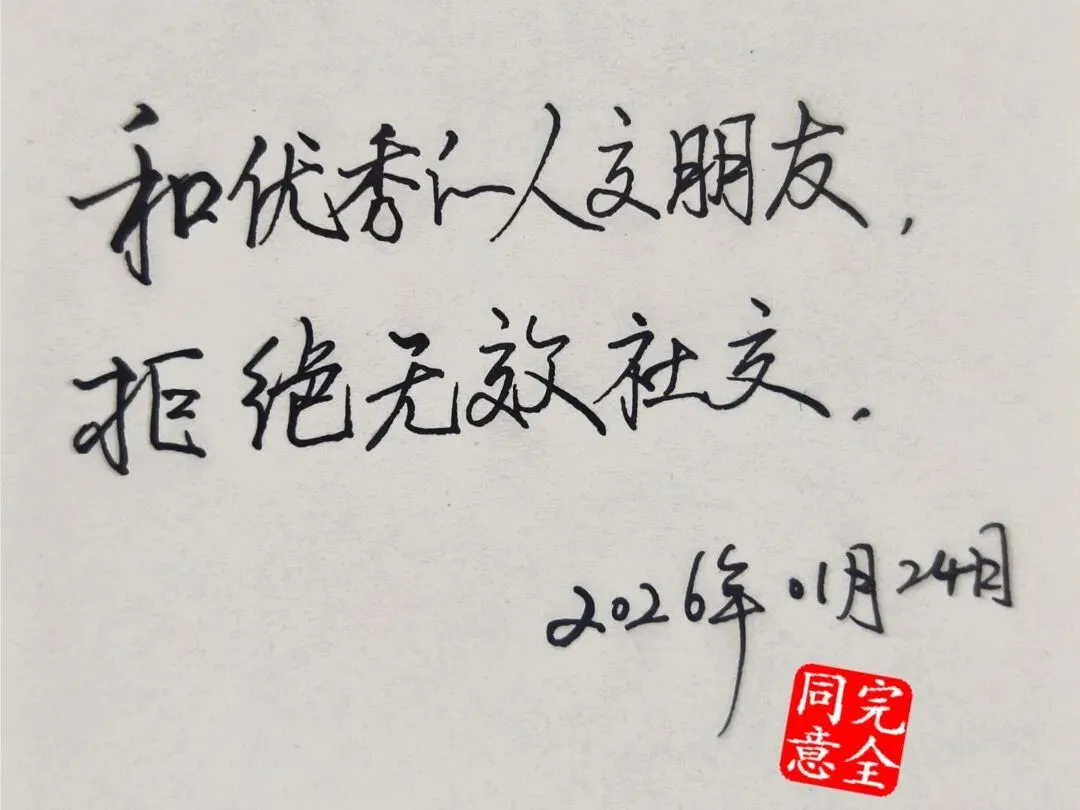 和优秀的人交朋友,
拒绝无效社交.
2026年01月24日
完全同意